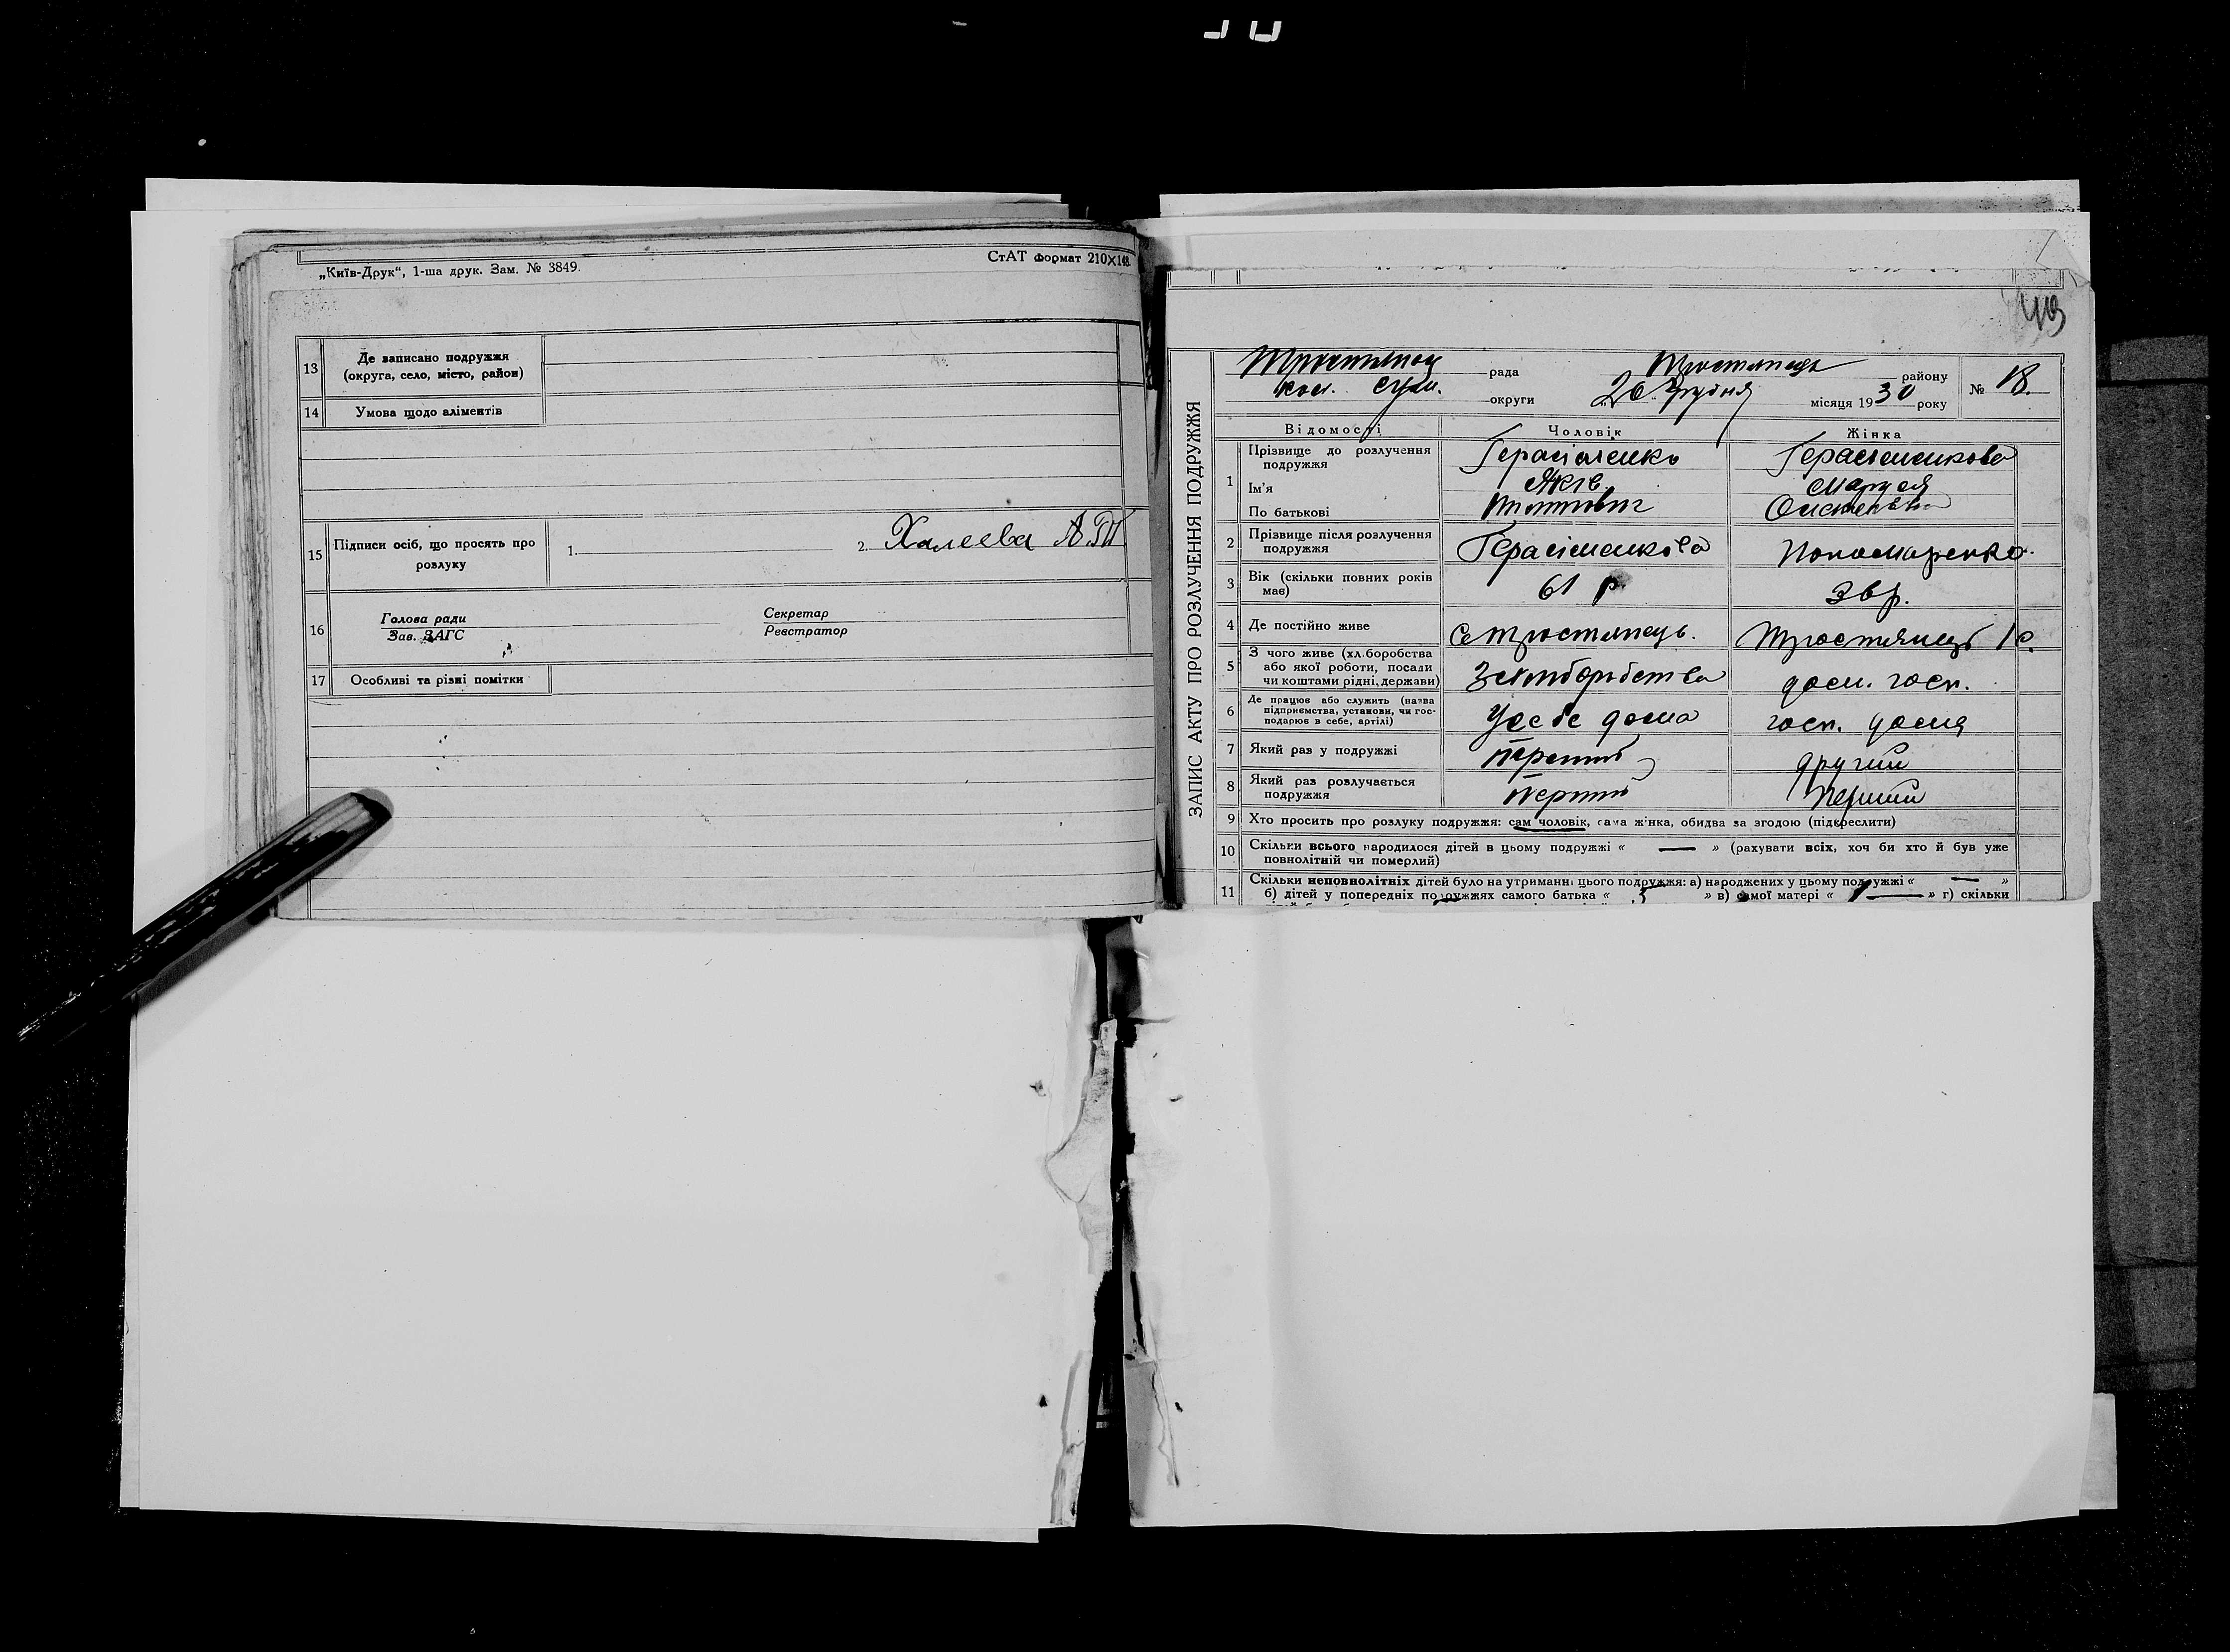 „Київ-Друк“, 1-ша друк. Зам. № 3849.
СтАТ формат 210×148.
13 Де записано подружжя
(округа, село, місто, район)
14 Умова щодо аліментів
15 Підписи осіб, що просять про
розлуку
1. 2. Халеева
16 Голова ради
Зав. ЗАГС
Секретар
Реєстратор
17 Особливі та різні помітки
ЗАПИС АКТУ ПРО РОЗЛУЧЕННЯ ПОДРУЖЖЯ
рада Тростянець району
округи 20 Грудня місяця 1930 року № 18.
Відомості Чоловік Жінка
1 Прізвище до розлучення
подружжя Герасіменко Герасіменкова
Ім'я Яків Маруся
По батькові
2 Прізвище після розлучення
подружжя Герасіменкова Пономаренко.
3 Вік (скільки повних років
має) 61 р.
4 Де постійно живе с Тростянець. Тростянець
5 З чого живе (хліборобства
або якої роботи, посади
чи коштами рідні, держави) дом. госп.
6 Де працює або служить (назва
підприємства, установи, чи гос-
подарює в себе, артілі) У себе дома госп. дома
7 Який раз у подружжі перший другий
8 Який раз розлучається
подружжя перший перший
9 Хто просить про розлуку подружжя: сам чоловік, сама жінка, обидва за згодою (підкреслити)
10 Скільки всього народилося дітей в цьому подружжі « — » (рахувати всіх, хоч би хто й був уже
повнолітній чи померлий)
11 Скільки неповнолітніх дітей було на утриманні цього подружжя: а) народжених у цьому подружжі « — »
б) дітей у попередніх подружжях самого батька « » в) самої матері « » г) скільки